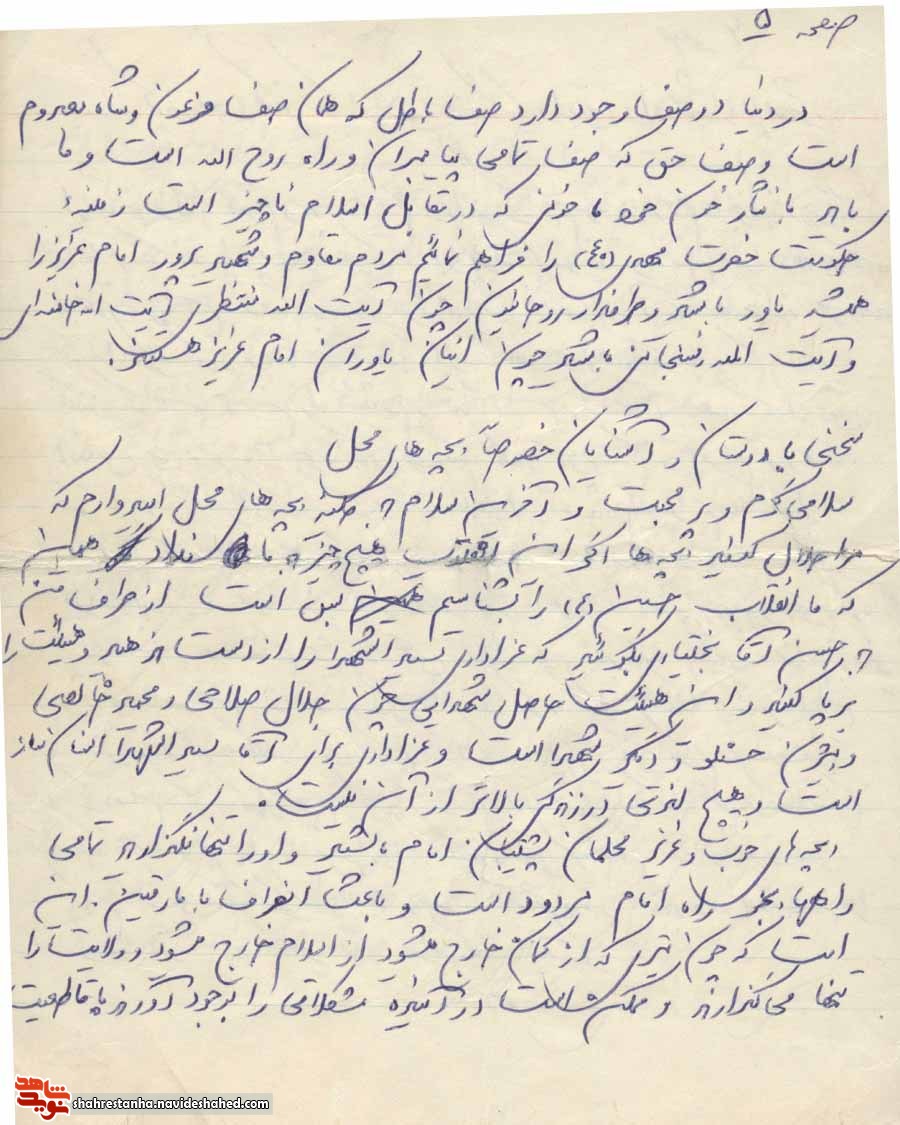 صفحه ۵
در دنیا دو صف وجود دارد صف باطل که همان صف فرعون و شاه معدوم
است و صف حق که صف تمامی پیامبران و راه روح الله است و ما
باید با نثار خون خود ما خونی که در مقابل اسلام ناچیز است زمینهٔ
حکومت حضرت مهدی (عج) را فراهم نمائیم مردم مقاوم و شهید پرور امام عزیز را
همیشه یاور باشید و طرفدار روحانیون چون آیت الله منتظری آیت اله خامنه‌ای
و آیت الله رفسنجانی باشید چون اینان یاوران امام عزیز هستند.
سخنی با دوستان و آشنایان خصوصاً بچه های محل
سلامی گرم و پر محبت و آخرین سلام به کلیهٔ بچه های محل امیدوارم که
مرا حلال کنید بچه ها اگر این انقلاب هیچ چیز به ما نداد همین
که ما انقلاب حسین (ع) را بشناسیم بس است از طرف من
به حسن آقا بختیاری بگوئید که عزاداری سید الشهدا را از دست ندهید و هیئت را
بر پا کنید و این هیئت حاصل شهدایی چون جلال صلاحی و محمد خالصی
و بیژن و دیگر شهدا است و عزاداری برای آقا سید الشهدا انسان ساز
است و هیچ لذتی در زندگی بالاتر از آن نیست.
بچه های خوب و عزیز محلمان پشتیبان امام باشید و او را تنها نگذارید تمامی
راهها بجز راه امام مردود است و باعث انحراف با مارقین. این
است که چون تیری که از کمان خارج میشود از اسلام خارج میشود و ولایت را
تنها می گذارند و ممکن است در آینده مشکلاتی را بوجود آورند با قاطعیت
شاهد
نوید
shahrestanha.navideshahed.com